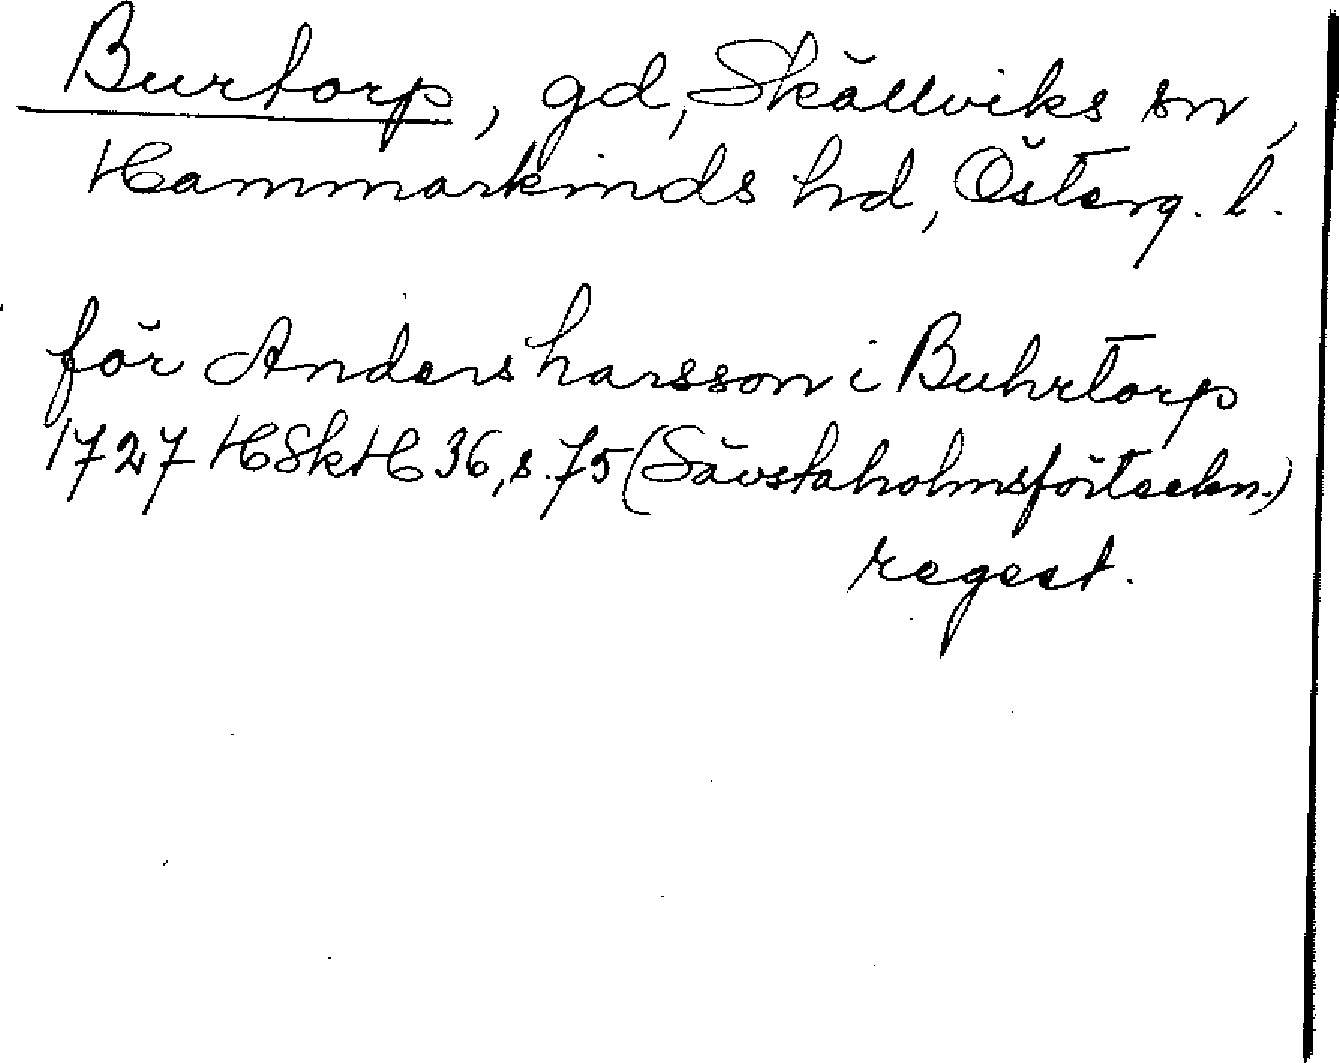 Burtorp, gd, Skällviks sn,
Hammarkinds hd, Österg. l.
för Anders harsson i Buhrtorp
1727 HSkH 36, s. 75 (Sävstaholmsförteckn.)
regest.